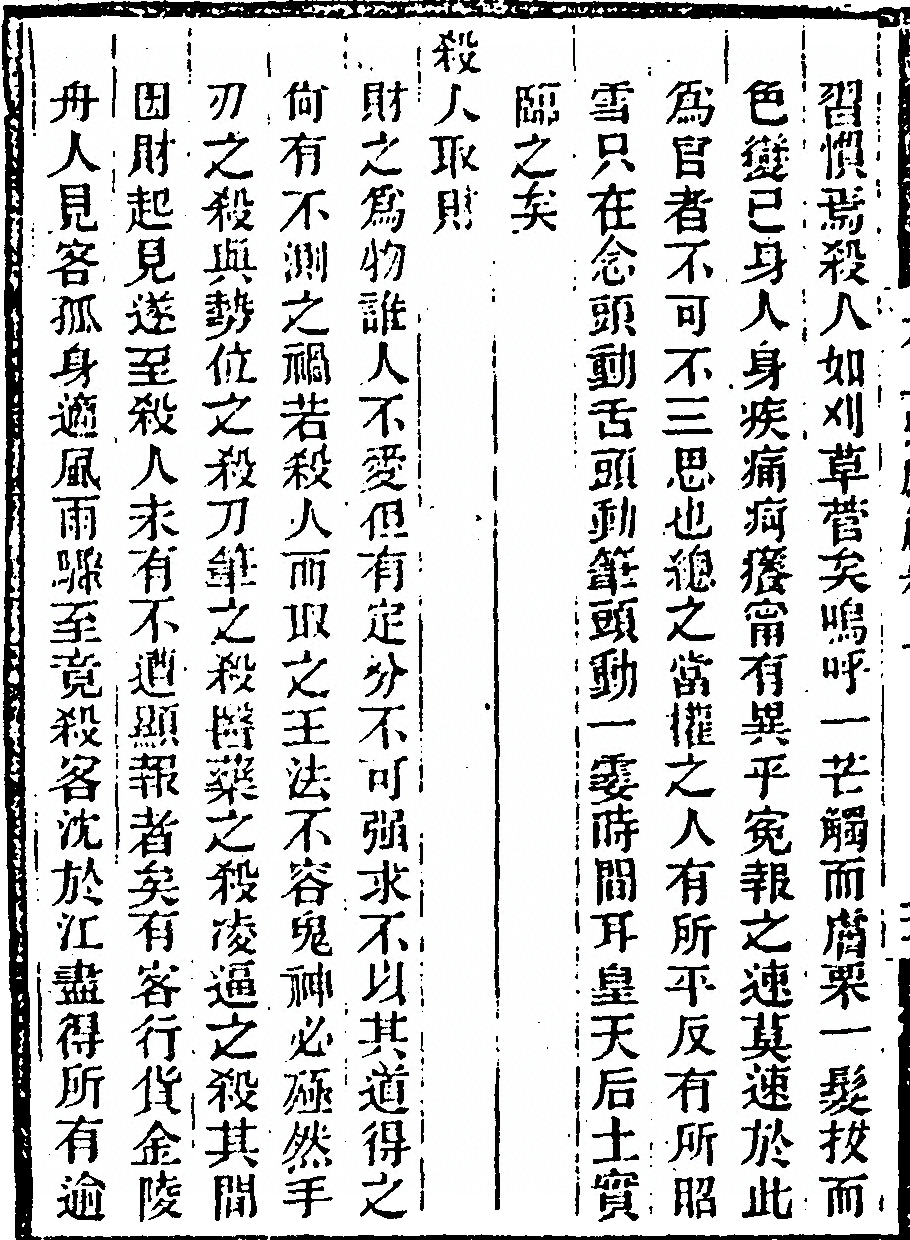 習慣焉殺人如刈草菅矣嗚呼一芒觸而膚栗一髮拔而
色變已身人身疾痛痾癢甯有異乎寃報之速莫速於此
爲官者不可不三思也總之當權之人有所平反有所昭
雪只在念頭動舌頭動筆頭動一霎時間耳皇天后土實
臨之矣
殺人取財
財之爲物誰人不愛但有定分不可强求不以其道得之
尙有不測之禍若殺人而取之王法不容鬼神必殛然手
刃之殺與勢位之殺刀筆之殺醫藥之殺凌逼之殺其間
因財起見遂至殺人未有不遭顯報者矣有客行貨金陵
舟人見客孤身適風雨驟至竟殺客沈於江盡得所有逾